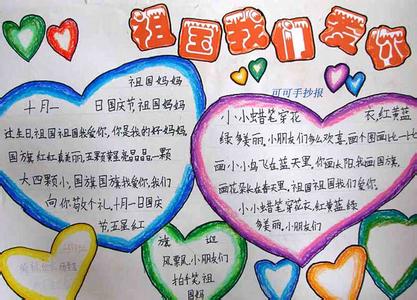 祖国我们爱你
可可手抄报
祖国妈妈
十月一 日国庆节祖国妈妈
过生日祖国祖国我爱你,你是我的好妈妈,
国旗红红真美丽,五颗星亮晶晶一颗
大四颗小,国旗国旗我爱你,我们
向你敬个礼,十月一日国庆
节五星红
旗 迎
风飘,小朋友们
拍手笑祖
国妈
小小蜡笔穿花 衣,红黄蓝
绿多美丽,小朋友们多么欢喜,画个图画比一比
画小小鸟飞在蓝天里,你画太阳我画国旗,
画花朵长在春天里,祖国祖国我们爱你,
小小蜡笔穿花衣,红黄蓝绿
多美丽,小朋友们